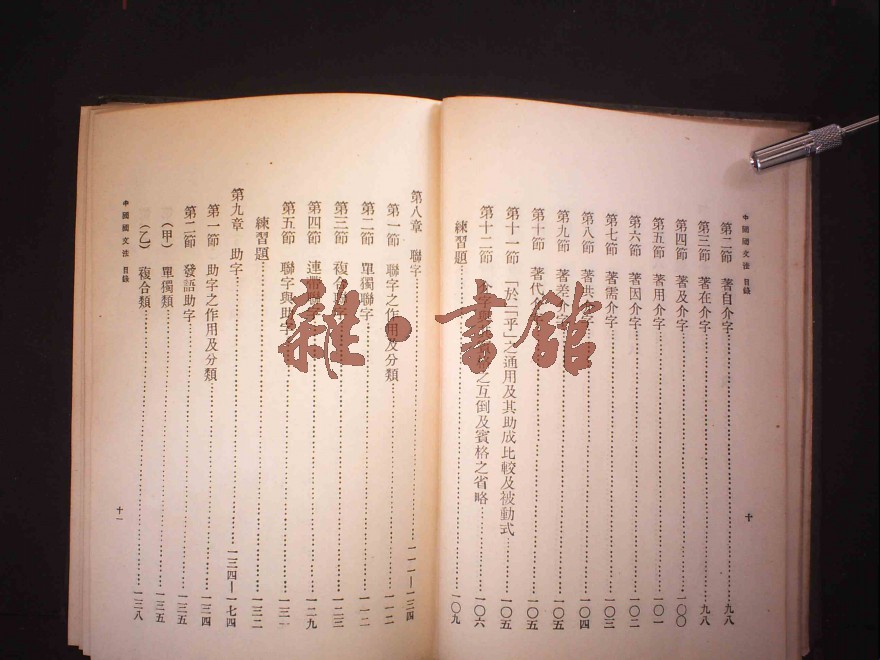 中國國文法 目錄
第二節 著自介字 九八
第三節 著在介字 九八
第四節 著及介字 一〇〇
第五節 著用介字 一〇一
第六節 著因介字 一〇二
第七節 著需介字 一〇三
第八節 著共介字 一〇四
第九節 著差介字 一〇五
第十節 著代介 一〇五
第十一節 「於」「乎」之通用及其助成比較及被動式 一〇五
第十二節 介字與 之互倒及賓格之省略 一〇六
練習題 一〇九
十
第八章 聯字 一一一—一三四
第一節 聯字之作用及分類 一一二
第二節 單獨聯字 一一二
第三節 複合 字 一二三
第四節 連 一二九
第五節 聯字與助字 一三一
練習題 一三二
第九章 助字 一三四—一七四
第一節 助字之作用及分類 一三四
第二節 發語助字 一三五
（甲） 單獨類 一三五
（乙） 複合類 一三八
中國國文法 目錄
十一
雜·書館